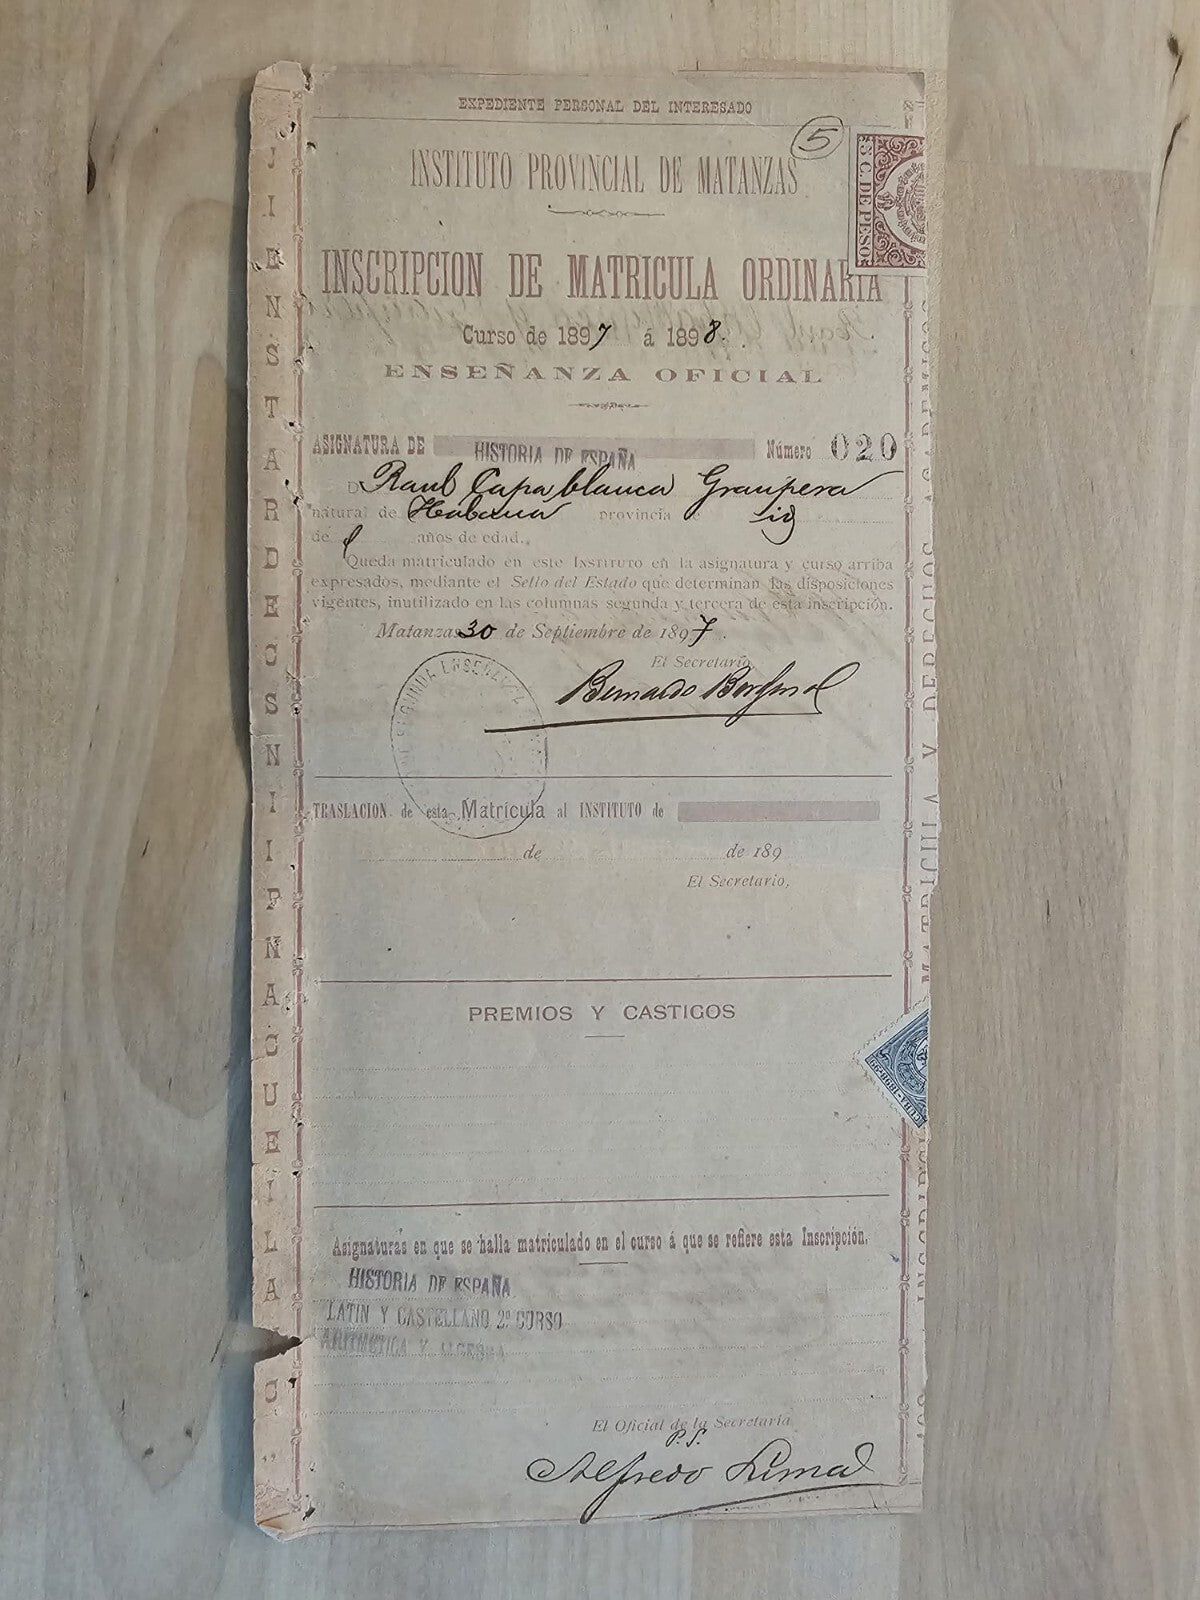 EXPEDIENTE PERSONAL DEL INTERESADO
5
5 C. DE PESO
INSTITUTO PROVINCIAL DE MATANZAS
INSCRIPCION DE MATRICULA ORDINARIA
Curso de 1897 á 1898.
ENSEÑANZA OFICIAL
ASIGNATURA DE HISTORIA DE ESPAÑA Número 020
D. Raul Capablanca Graupera
natural de Habana provincia de id
de años de edad.
Queda matriculado en este INSTITUTO en la asignatura y curso arriba
expresados, mediante el Sello del Estado que determinan las disposiciones
vigentes, inutilizado en las columnas segunda y tercera de esta inscripción.
Matanzas 30 de Septiembre de 1897.
El Secretario,
Bernardo
SEGUNDA ENSEÑANZA
TRASLACION de esta Matrícula al INSTITUTO de
de de 189
El Secretario,
PREMIOS Y CASTIGOS
CUBA-1898-99
Asignaturas en que se halla matriculado en el curso á que se refiere esta Inscripción.
HISTORIA DE ESPAÑA
LATIN Y CASTELLANO 2º CURSO
ARITMETICA Y ALGEBRA
El Oficial de la Secretaría
P. S.
Alfredo
MATRICULA Y DERECHOS ACADEMICOS